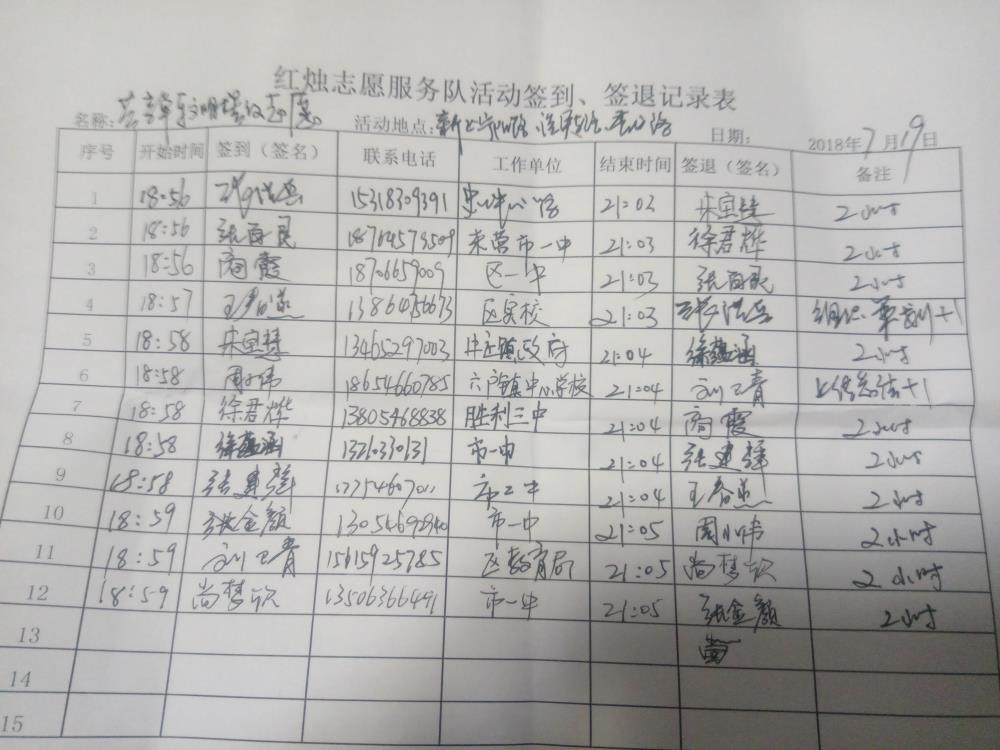 红烛志愿服务队活动签到、签退记录表
名称：
活动地点：
日期： 2018年7月19日
序号 开始时间 签到（签名） 联系电话 工作单位 结束时间 签退（签名） 备注
1 18:56 15318309391 21:03 宋宝慧 2小时
2 18:56 张百良 18764573509 东营市一中 21:03 徐君烨 2小时
3 18:56 商霞 18706659009 区一中 21:03 张百良 2小时
4 18:57 13864756673 区实校 21:03 +1
5 18:58 宋宝慧 13465297003 镇政府 21:04 徐蕴涵 2小时
6 18:58 周小伟 18654660785 六户镇中心学校 21:04 刘卫青 +1
7 18:58 徐君烨 13805468838 胜利三中 21:04 商霞 2小时
8 18:58 徐蕴涵 市一中 21:04 张建强 2小时
9 18:58 张建强 21:04 2小时
10 18:59 张金额 市一中 21:05 周小伟 2小时
11 18:59 刘卫青 15615925785 区教育局 21:05 尚梦欣 2小时
12 18:59 尚梦欣 13506366491 市一中 21:05 张金额 2小时
13
14
15